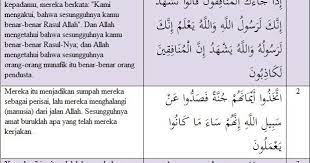 kepadamu, mereka berkata: "Kami
mengakui, bahwa sesungguhnya kamu
benar-benar Rasul Allah". Dan Allah
mengetahui bahwa sesungguhnya kamu
benar-benar Rasul-Nya; dan Allah
mengetahui bahwa sesungguhnya
orang-orang munafik itu benar-benar orang
pendusta.
إِذَا جَاءَكَ الْمُنَافِقُونَ قَالُوا نَشْهَدُ
إِنَّكَ لَرَسُولُ اللَّهِ وَاللَّهُ يَعْلَمُ إِنَّكَ
لَرَسُولُهُ وَاللَّهُ يَشْهَدُ إِنَّ الْمُنَافِقِينَ
لَكَاذِبُونَ
Mereka itu menjadikan sumpah mereka
sebagai perisai, lalu mereka menghalangi
(manusia) dari jalan Allah. Sesungguhnya
amat buruklah apa yang telah mereka
kerjakan.
اتَّخَذُوا أَيْمَانَهُمْ جُنَّةً فَصَدُّوا عَنْ
سَبِيلِ اللَّهِ إِنَّهُمْ سَاءَ مَا كَانُوا
يَعْمَلُونَ
2